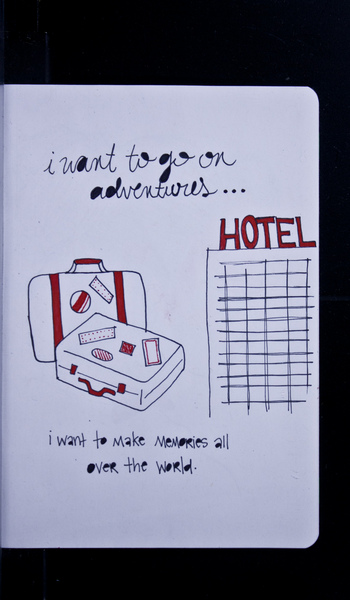 i want to go on
adventures...
HOTEL
i want to make memories all
over the world.